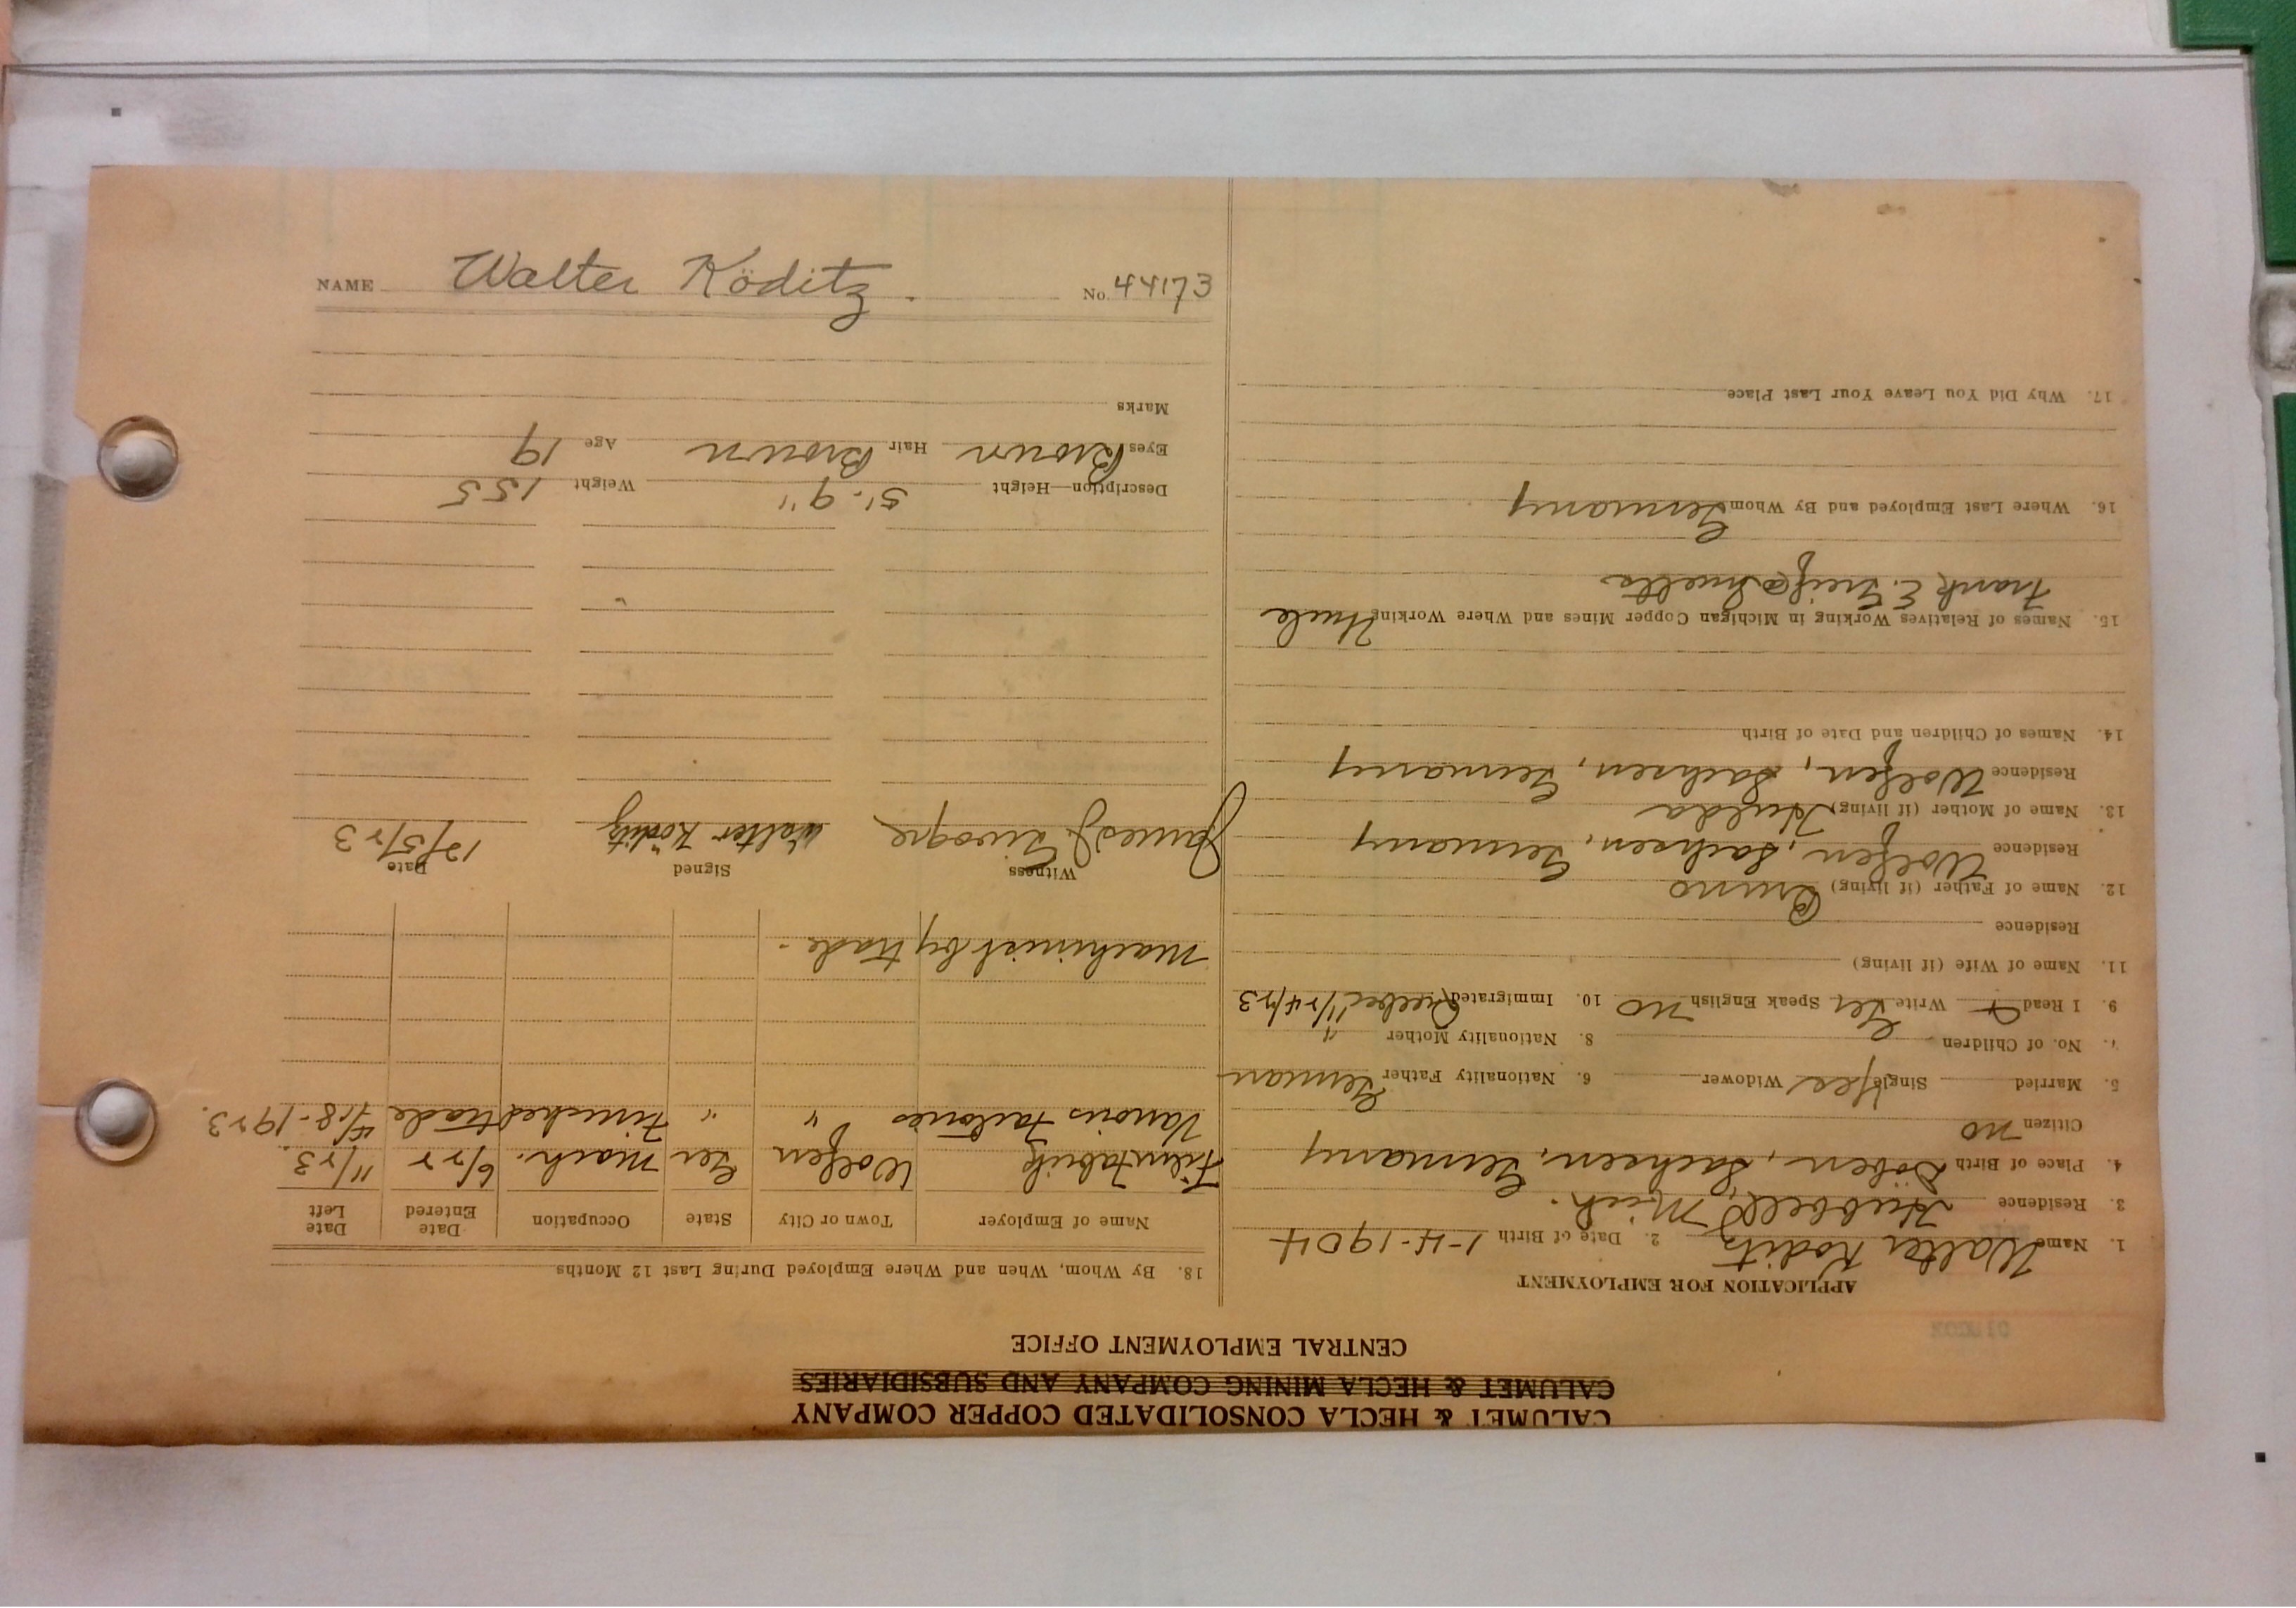 CALUMET & HECLA CONSOLIDATED COPPER COMPANY
CALUMET & HECLA MINING COMPANY AND SUBSIDIARIES
CENTRAL EMPLOYMENT OFFICE
APPLICATION FOR EMPLOYMENT
1. Name Walter Koditz 2. Date of Birth 1-4-1904
3. Residence Hubbell, Mich.
4. Place of Birth Döben, Sachsen, Germany
Citizen no
5. Married Single Yes Widower 6. Nationality Father German
7. No. of Children 8. Nationality Mother "
9. I Read & Write Ger Speak English no 10. Immigrated Quebec 11/24/23
11. Name of Wife (if living)
Residence
12. Name of Father (if living) Bruno
Residence Wolfen, Sachsen, Germany
13. Name of Mother (if living) Hulda
Residence Wolfen, Sachsen, Germany
14. Names of Children and Date of Birth
15. Names of Relatives Working in Michigan Copper Mines and Where Working Uncle
Frank E. @ Smelts
16. Where Last Employed and By Whom Germany
17. Why Did You Leave Your Last Place
18. By Whom, When and Where Employed During Last 12 Months
Name of Employer Town or City State Occupation Date Entered Date Left
Filmfabrik Wolfen Ger Mach. 6/22 11/23.
Various Factories " " Finished trade 4/18-1923.
Machinist by trade.
Witness Signed Date
James J. Walter Köditz 12/5/23
Description—Height 5'-9" Weight 155
Eyes Brown Hair Brown Age 19
Marks
NAME Walter Köditz. No. 44173